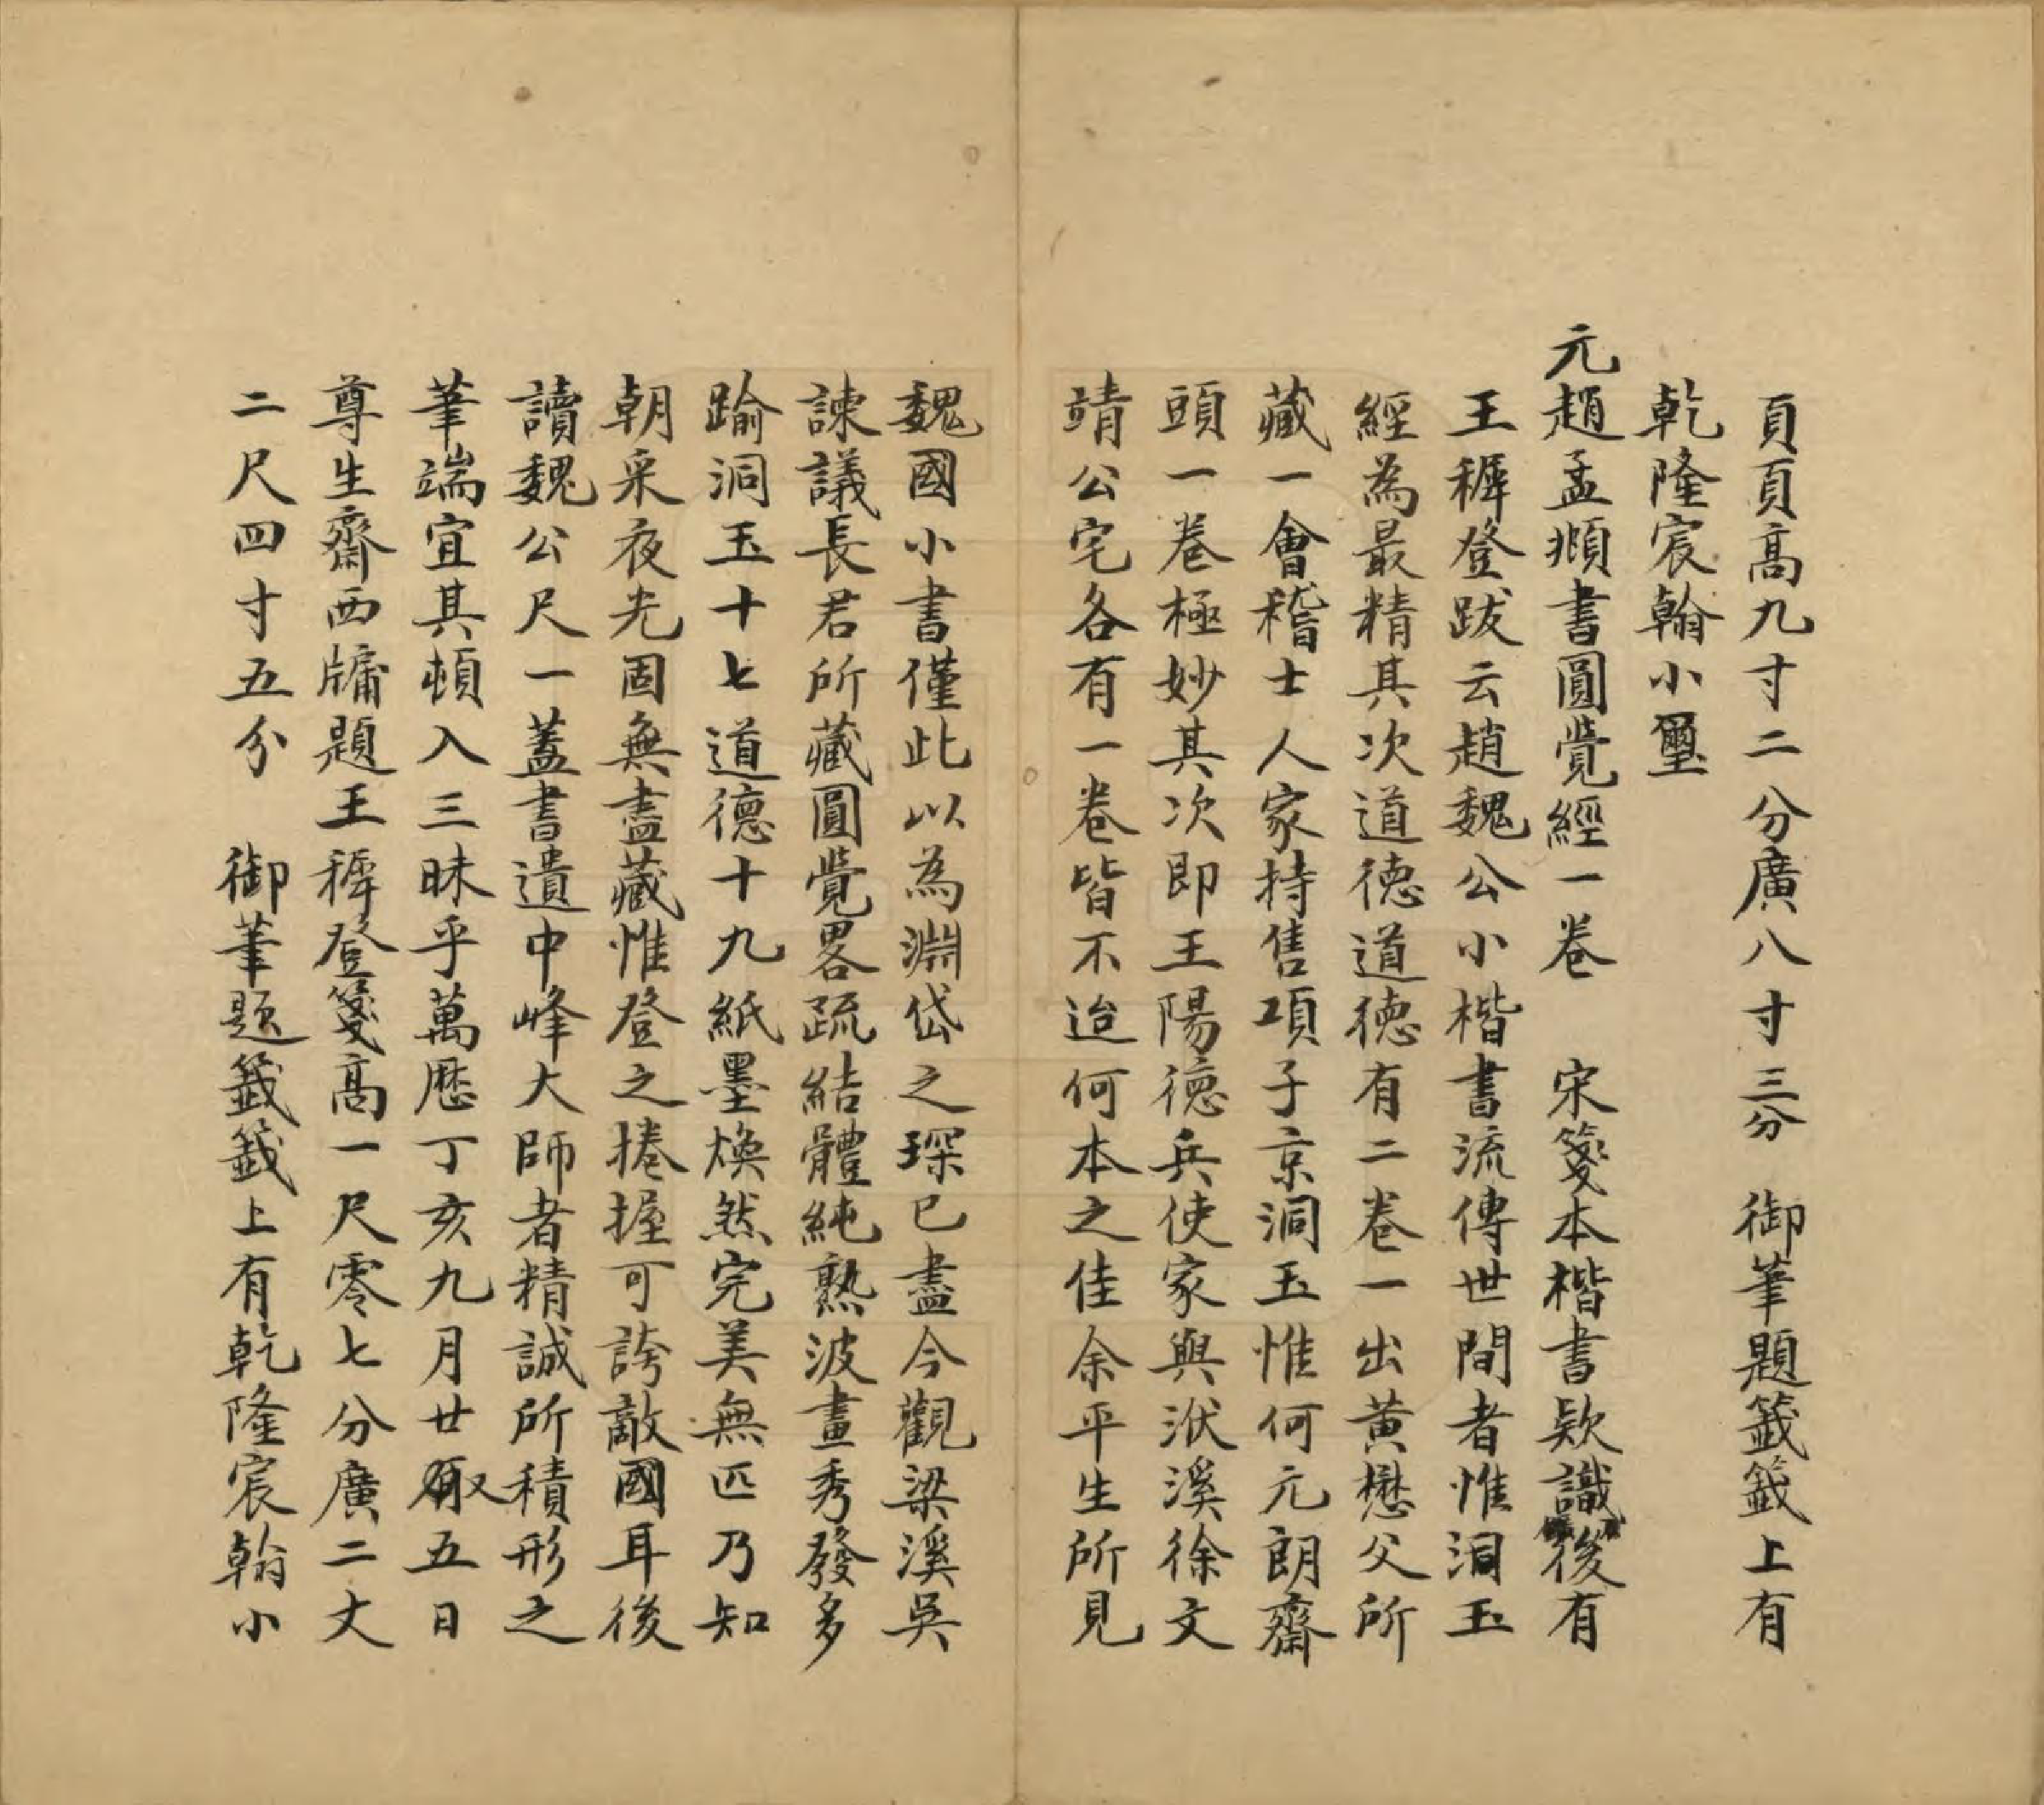 頁頁高九寸二分廣八寸三分　御筆題籤籤上有
乾隆宸翰小璽
元趙孟頫書圓覺經一卷　宋箋本楷書欵識後有
王穉登跋云趙魏公小楷書流傳世間者惟洞玉
經為最精其次道德道德有二卷一出黃懋父所
藏一會稽士人家持售項子京洞玉惟何元朗齋
頭一卷極妙其次即王陽德兵使家與洑溪徐文
靖公宅各有一卷皆不迨何本之佳余平生所見
魏國小書僅此以為淵岱之琛已盡今觀梁溪吳
諫議長君所藏圓覺畧疏結體純熟波畫秀發多
踰洞玉十七道德十九紙墨煥然完美無匹乃知
朝采夜光固無盡藏惟登之捲握可誇敵國耳後
讀魏公尺一蓋書遺中峰大師者精誠所積形之
筆端宜其頓入三昧乎萬厯丁亥九月廿五日
尊生齋西牗題王穉登箋高一尺零七分廣二丈
二尺四寸五分　御筆題籤籤上有乾隆宸翰小